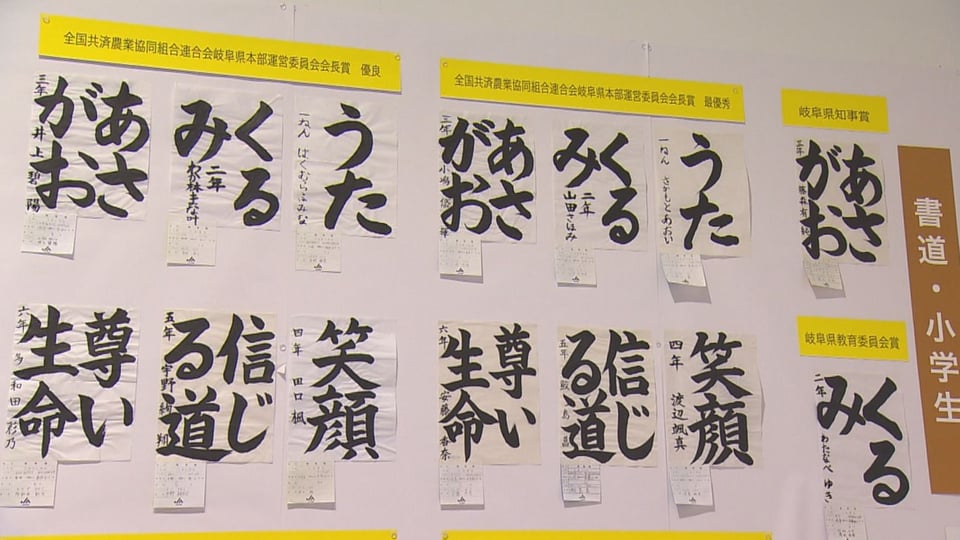 全国共済農業協同組合連合会岐阜県本部運営委員会会長賞 優良
うた
一ねん
くるみ
二年
あさがお
三年 井上碧陽
笑顔
四年 田口楓
信じる道
五年 宇野
尊い生命
六年 多和田彩乃
全国共済農業協同組合連合会岐阜県本部運営委員会会長賞 最優秀
うた
一ねん さかもとあおい
くるみ
二年 山田さほみ
あさがお
三年 小嶋
笑顔
四年 渡辺颯真
信じる道
五年
尊い生命
六年 安藤香奈
岐阜県知事賞
あさがお
三年 藤森有純
岐阜県教育委員会賞
くるみ
二年 わたなべゆき
書道・小学生